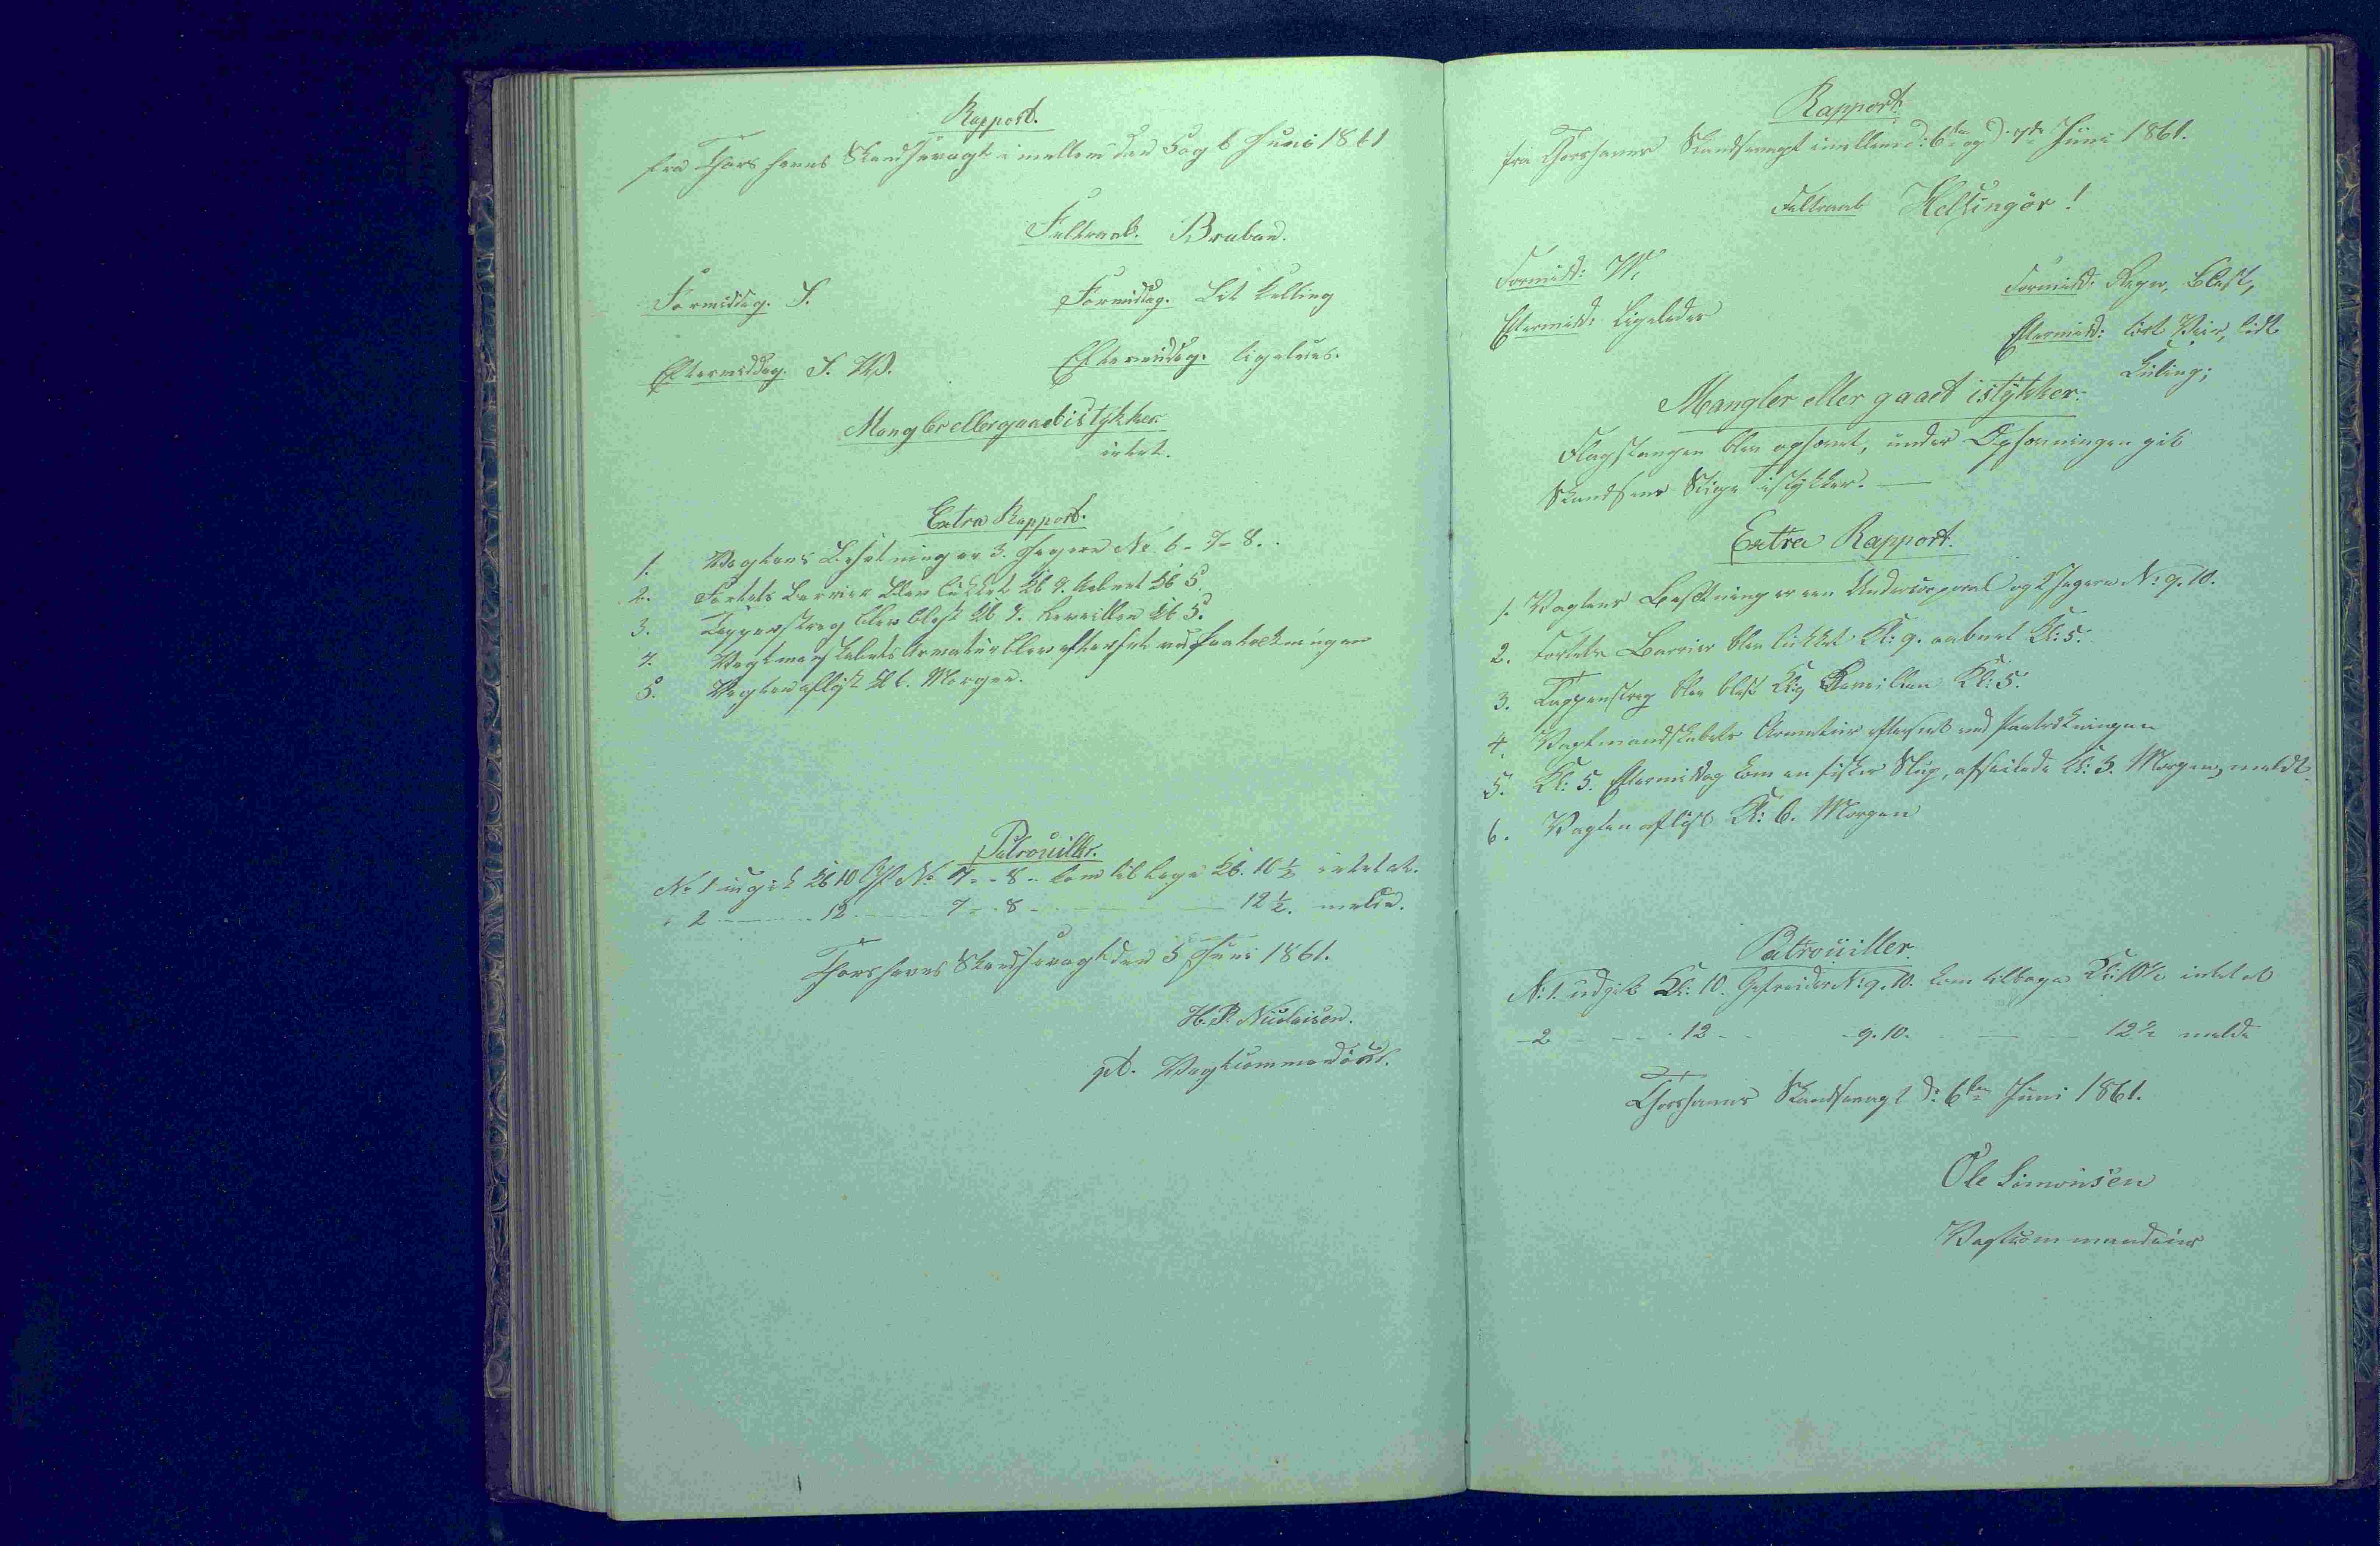 Rapport.
fra Thorshavns Skandsevagt imellem den 5 og 6 Juni 1861
Feltraab. Braban.
Formiddag. S.
Formiddag. Lit Kulling
Eftermiddag. S. W.
Eftermidag. ligeledes.
Mangler eller gaaet istykker.
intet.
Extra Rapport.
1. Vagtens Besetning er 3. Jegere No 6-7-8.
2. Fortets Barrier blev lukket Kl 9. aabnet Kl 5
3. Tappenstreg blev blest Kl 9. Reveillen Kl 5.
4. Vagtmanskabets Armatur blev efterset ved fratrekningen
5. Vagten aflyst Kl 6. Morgen.
Patrouiller.
No 1 udgik Kl 10 Gf No 7 - 8 - kom tilbage Kl. 10½ intet at
" 2 12 7 - 8 12½. melde.
Thorshavns Skandsevagt den 5 Juni 1861.
H. P. Nicolaisen.
pt. Vagtcommandør.
Rapport.
fra Thorshavns Skandsevagt imellem d: 6te og d. 7de Juni 1861.
Feltraab Helsingör!
Formidd: W.
Formidd: Regn, Blæst,
Eftermidd: ligeledes
Eftermidd: tört Veir, lidt
Kuling;
Mangler eller gaaet istykker.
Flagstangen blev opsat, under Opsætningen gik
Skandsens Stige istykker.
Extra Rapport.
1. Vagtens Besætning er een Undercorporal og 2 Jegere N: 9. 10.
2. Fortets Barrier blev lukket Kl: 9. aabnet Kl: 5.
3. Tappenstreg blev blest Kl: 9 Reveillen Kl: 5.
4. Vagtmandskabets Armatur efterset ved fratrækningen
5. Kl: 5. Eftermiddag kom en fisker Slup, afseilede Kl: 3. Morgen, meldt.
6. Vagten aflyst Kl: 6. Morgen
Patrouiller.
N: 1. udgik Kl: 10. Gefreider N: 9. 10. kom tilbage Kl: 10½ intet at
- 2 12 9. 10. 12½ melde
Thorshavns Skandsevagt d: 6te Juni 1861.
Ole Simonsen
Vagtcommandeur